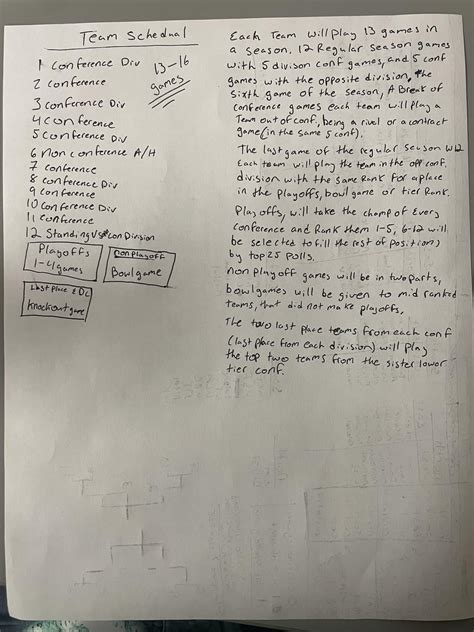 Team Schedual
1 Conference Div
2 conference
3 conference Div
4 conference
5 conference Div
6 non conference A/H
7 conference
8 conference Div
9 conference
10 conference Div
11 conference
12 Standing VS con Division
13-16
games
Playoffs
1-4 games
non playoff
Bowl game
Last place E DC
Knockout game
Each Team will play 13 games in
a season, 12 Regular season games
with 5 divison conf games, and 5 conf
games with the opposite division, the
sixth game of the season, A Break of
conference games each team will play a
Team out of conf, being a rivel or a contract
game (in the same 5 conf).
The last game of the regular season W12
Each team will play the team in the off conf.
division with the same Rank for a place
in the playoffs, bowl game or tier Rank.
Play offs, will take the champ of Every
conference and Rank them 1-5, 6-12 will
be selected to fill the rest of positions
by top 25 polls.
non playoff games will be in two parts,
bowl games will be given to mid ranked
teams, that did not make playoffs,
The two last place teams from each conf
(last place from each division) will play
the top two teams from the sister lower
tier conf.